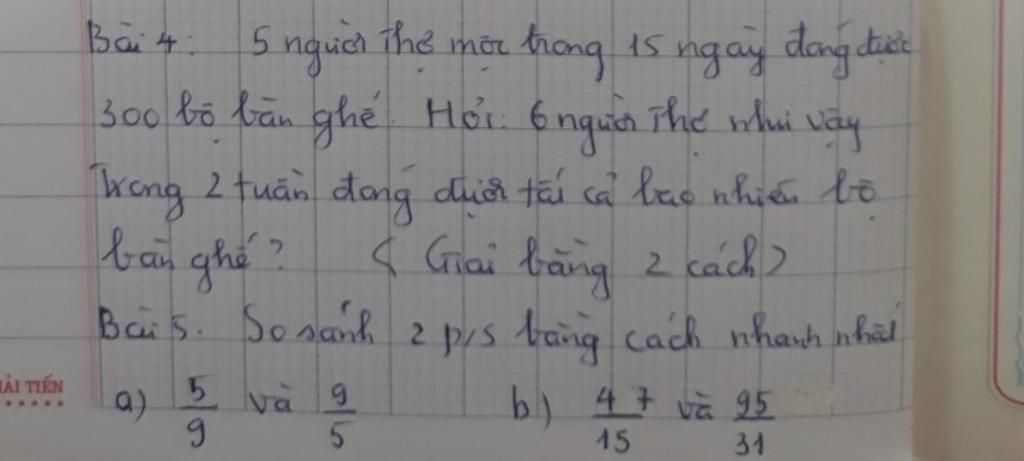 Bài 4: 5 người thợ mộc trong 15 ngày đóng được
300 bộ bàn ghế. Hỏi: 6 người thợ như vậy
Trong 2 tuần đóng được tất cả bao nhiêu bộ
bàn ghế? < Giải bằng 2 cách>
Bài 5. So sánh 2 p/s bằng cách nhanh nhất
a) 5/9 và 9/5 b) 47/15 và 95/31
ẢI TIẾN